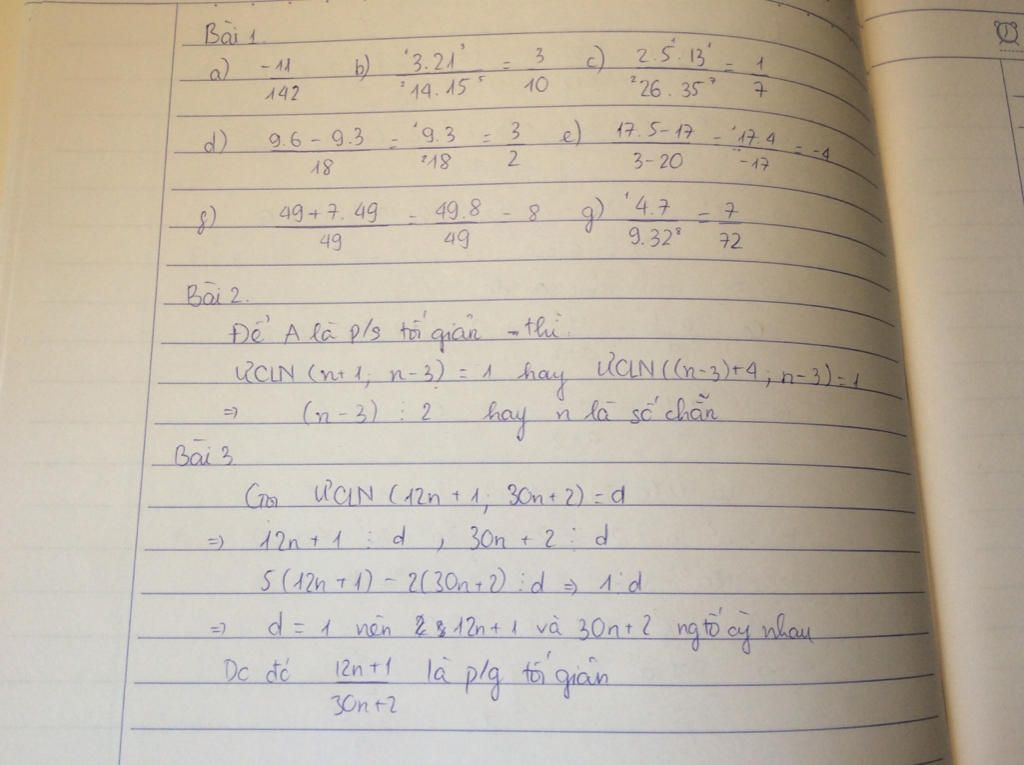 Bài 1.
a) -11/142 b) 3.21/14.15 = 3/10 c) 2.5.13/26.35 = 1/7
d) 9.6 - 9.3/18 = 9.3/18 = 3/2 e) 17.5-17/3-20 = 17.4/-17 = -4
f) 49+7.49/49 = 49.8/49 = 8 g) 4.7/9.32 = 7/72
Bài 2.
Để A là p/s tối giản thì
ƯCLN (n+1; n-3) = 1 hay ƯCLN((n-3)+4; n-3)=1
=> (n-3) ⋮ 2 hay n là số chẵn
Bài 3
Gọi ƯCLN (12n+1; 30n+2) = d
=> 12n+1 ⋮ d, 30n+2 ⋮ d
5(12n+1) - 2(30n+2) ⋮ d => 1 ⋮ d
=> d = 1 nên 12n+1 và 30n+2 ng tố cg nhau
Do đó 12n+1/30n+2 là p/g tối giản